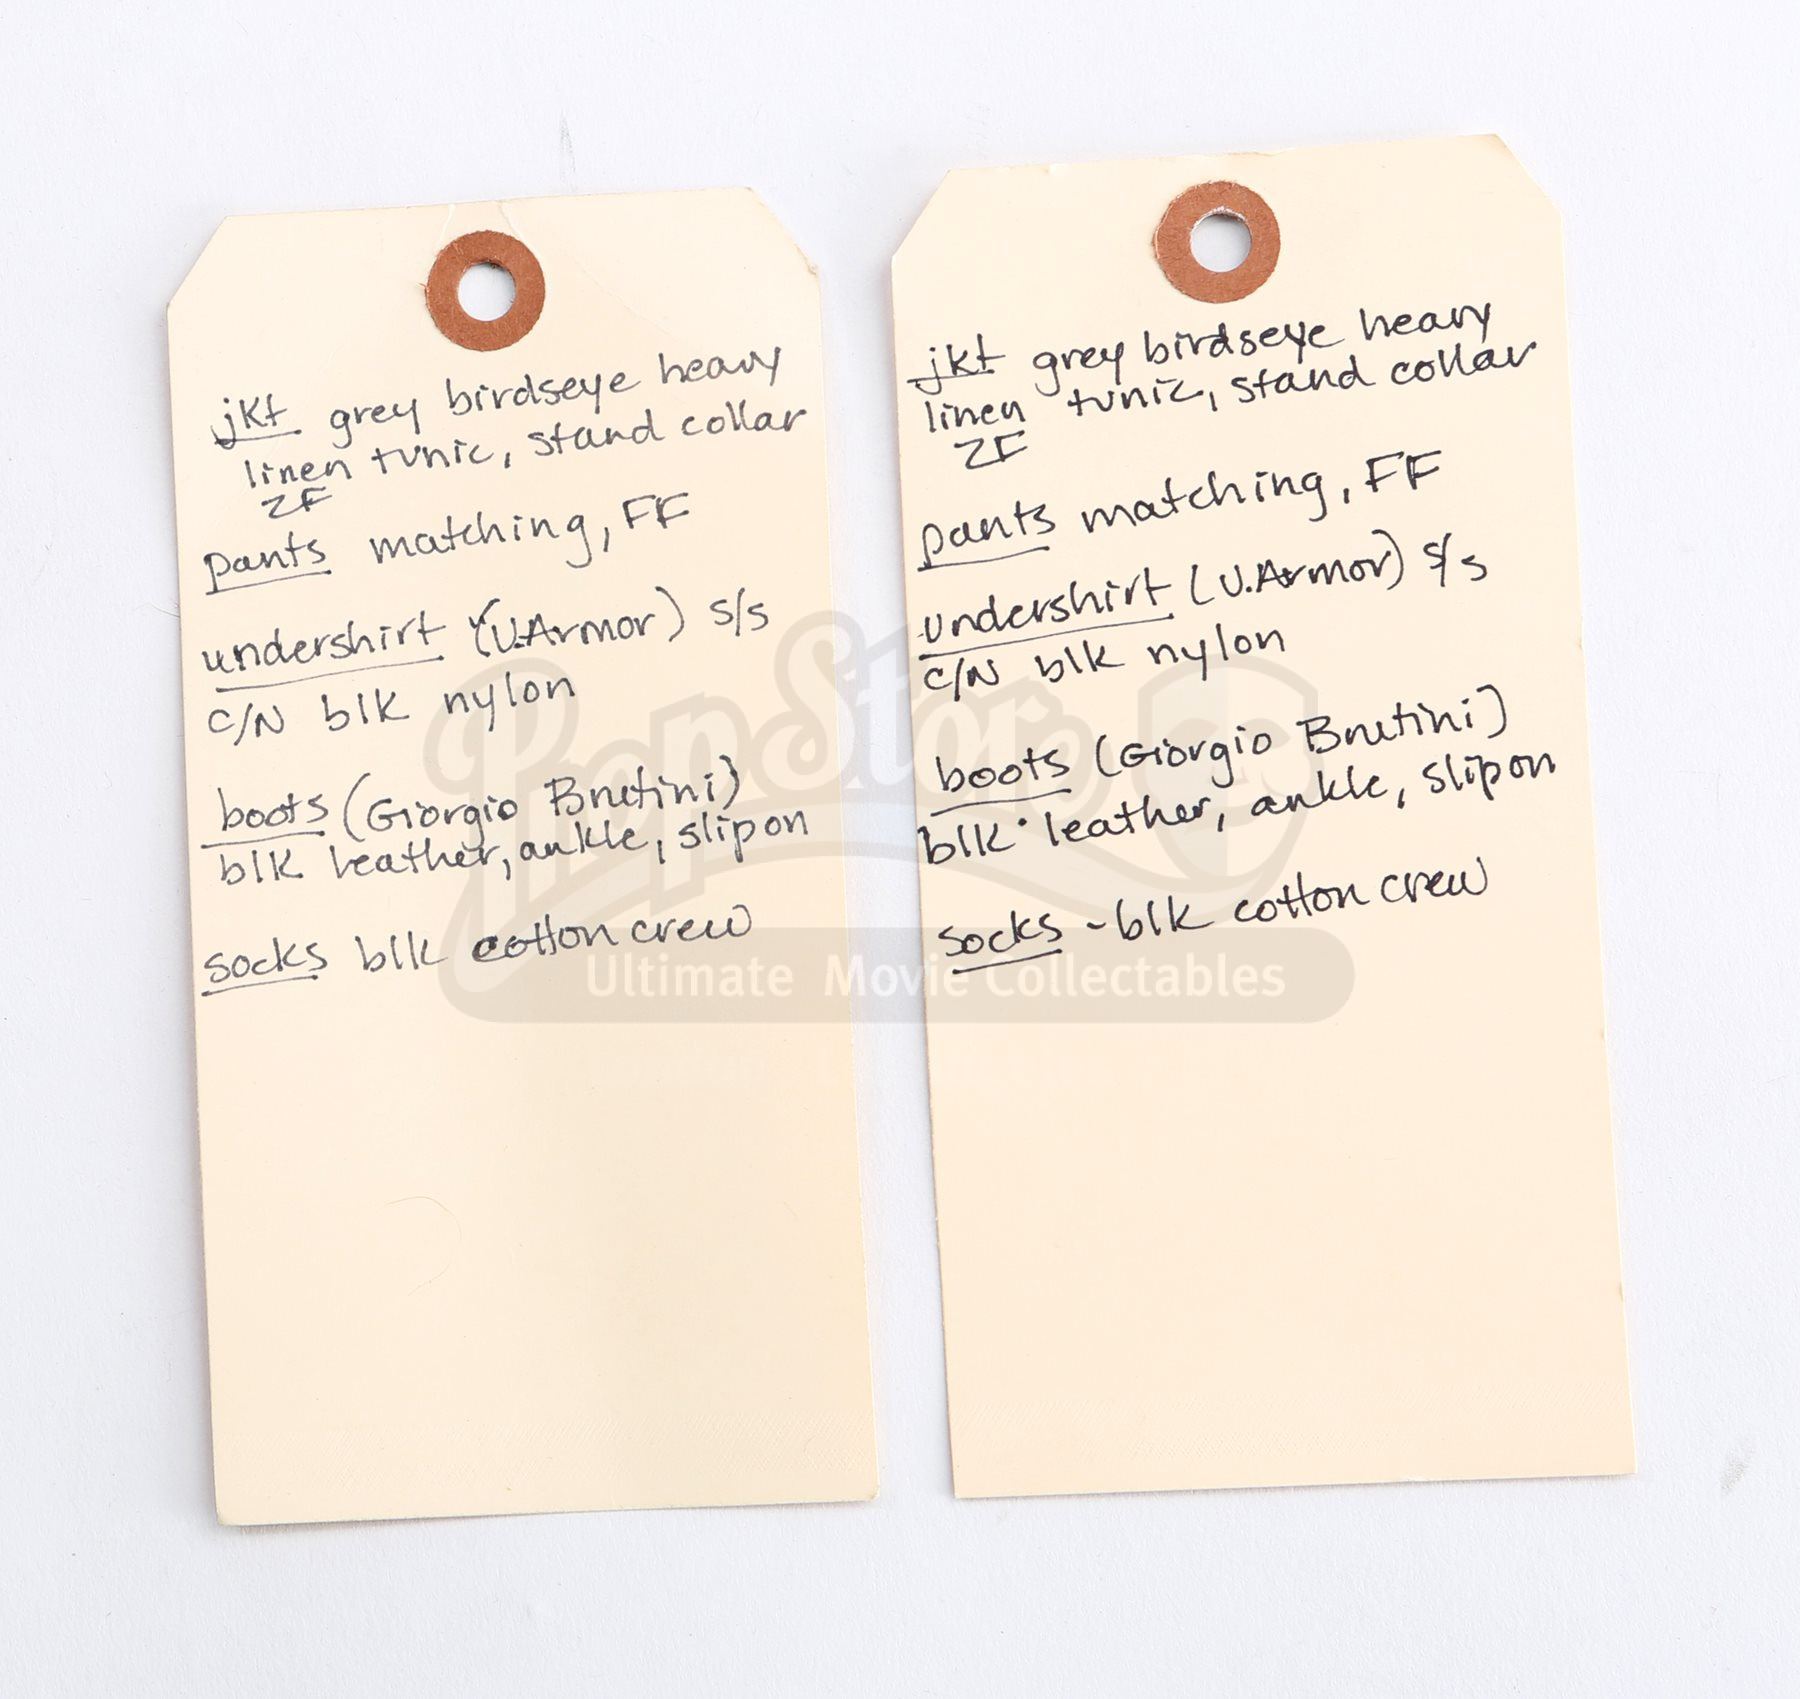 jkt grey birdseye heavy
linen tunic, stand collar
ZF
pants matching, FF
undershirt (U.Armor) s/s
c/N blk nylon
boots (Giorgio Brutini)
blk leather, ankle, slipon
socks blk cotton crew
jkt grey birdseye heavy
linen tunic, stand collar
ZF
pants matching, FF
undershirt (U.Armor) s/s
c/N blk nylon
boots (Giorgio Brutini)
blk leather, ankle, slipon
socks - blk cotton crew
PropStore
Ultimate Movie Collectables